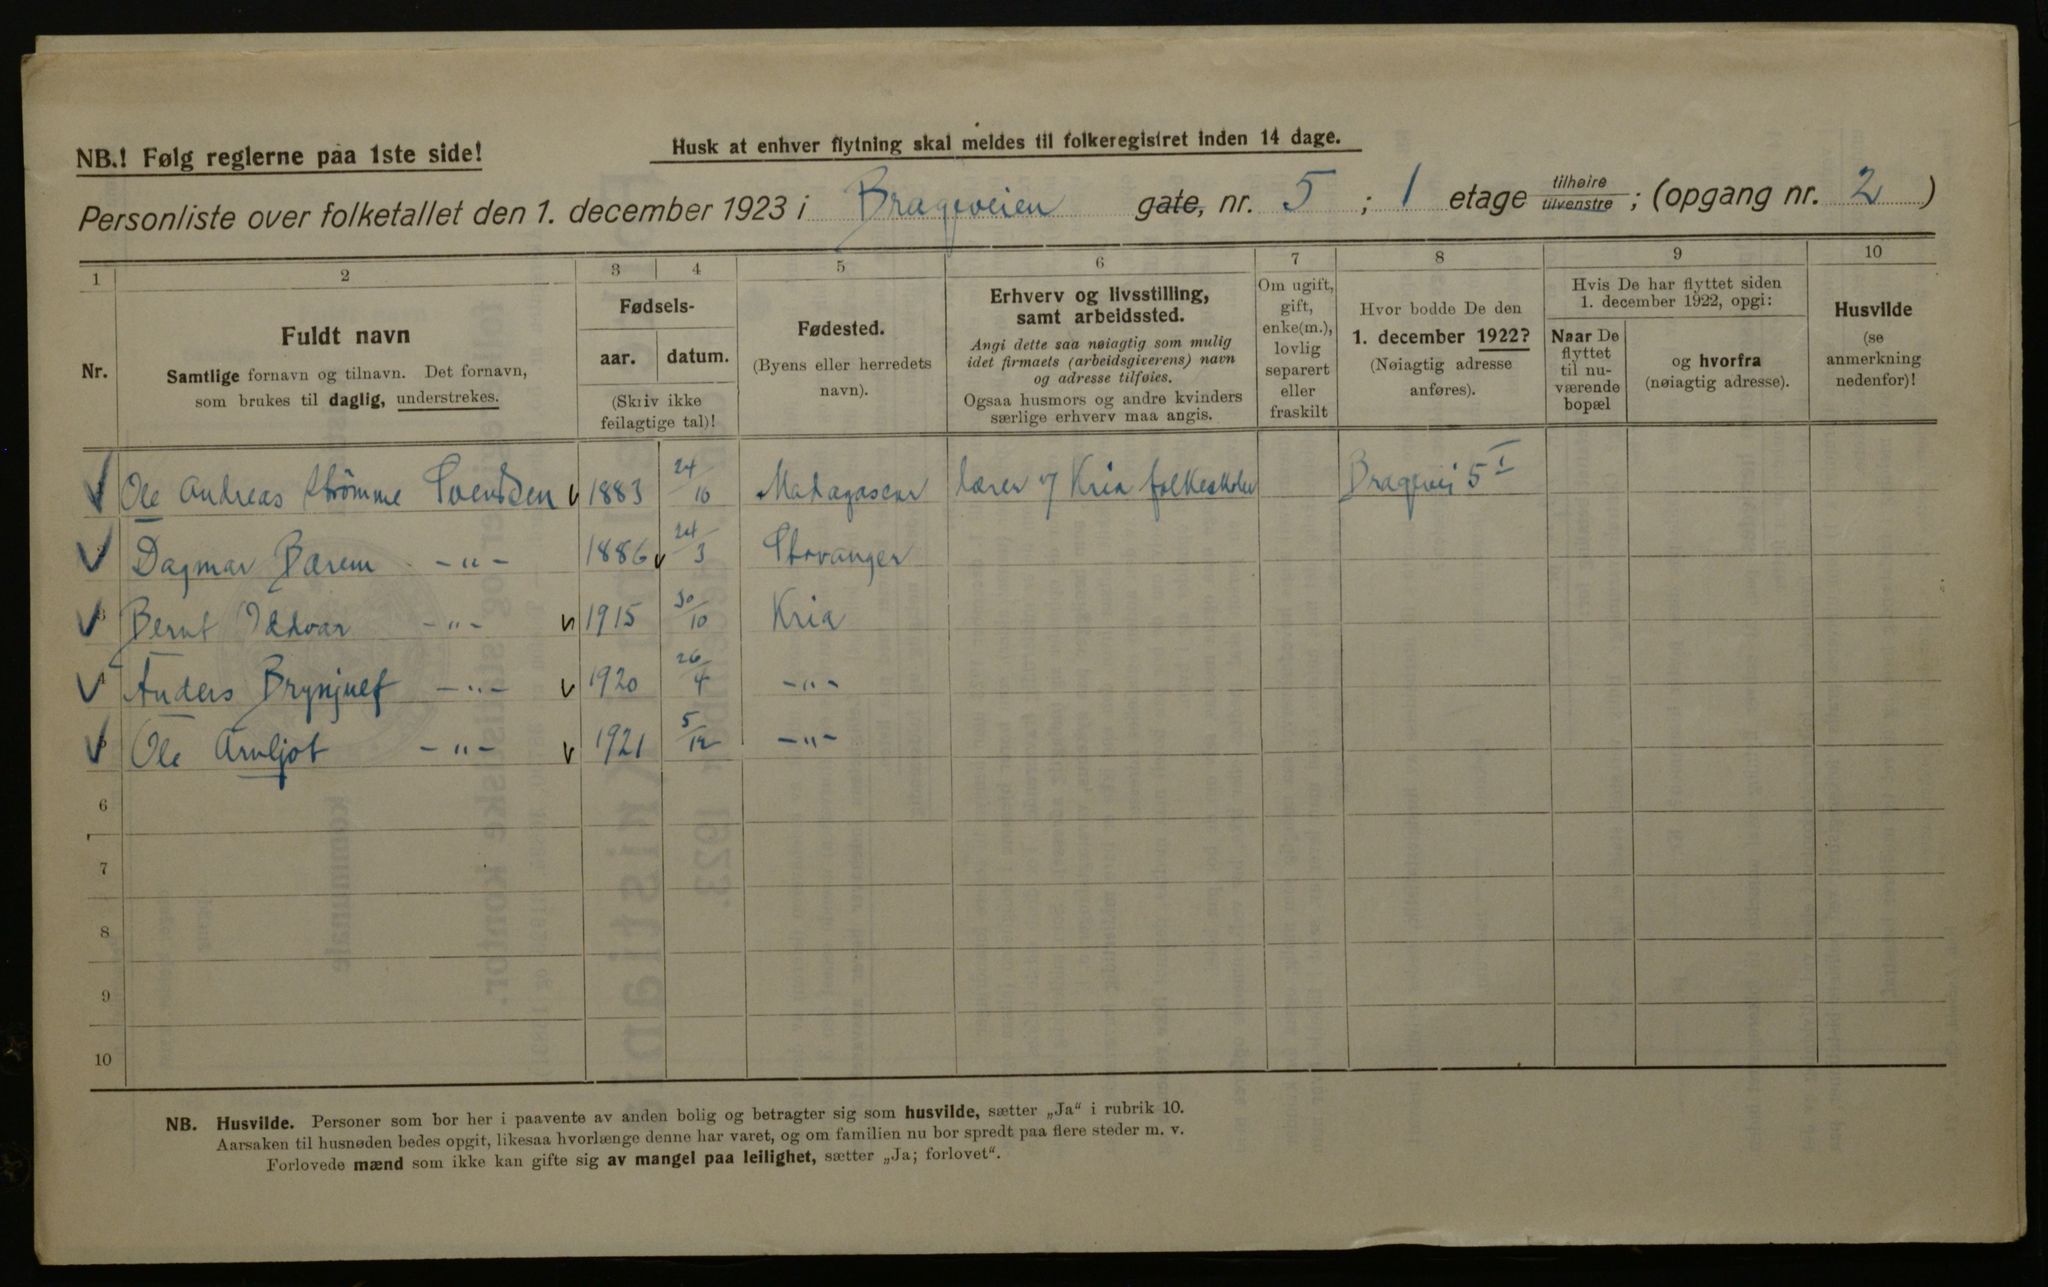 NB.! Følg reglerne paa 1ste side!
Husk at enhver flytning skal meldes til folkeregistret inden 14 dage.
Personliste over folketallet den 1. december 1923 i Brageveien gate, nr. 5 ; 1 etage tilhøire tilvenstre ; (opgang nr. 2 )
1 2 3 4 5 6 7 8 9 10
Nr.
Fuldt navn
Samtlige fornavn og tilnavn. Det fornavn,
som brukes til daglig, understrekes.
Fødsels-
aar. datum.
(Skriv ikke
feilagtige tal)!
Fødested.
(Byens eller herredets
navn).
Erhverv og livsstilling,
samt arbeidssted.
Angi dette saa nøiagtig som mulig
idet firmaets (arbeidsgiverens) navn
og adresse tilføies.
Ogsaa husmors og andre kvinders
særlige erhverv maa angis.
Om ugift,
gift,
enke(m.),
lovlig
separert
eller
fraskilt
Hvor bodde De den
1. december 1922?
(Nøiagtig adresse
anføres).
Hvis De har flyttet siden
1. december 1922, opgi:
Naar De
flyttet
til nu-
værende
bopæl
og hvorfra
(nøiagtig adresse).
Husvilde
(se
anmerkning
nedenfor)!
1 Ole Andreas Strömme Svendsen 1883 24/10 Madagascar lærer v/ Kria folkeskoler Bragevei 5 I
2 Dagmar Bærem -"- 1886 24/3 Stavanger
3 Bernt Iddvar -"- 1915 30/10 Kria
4 Anders Brynjulf -"- 1920 26/4 -"-
5 Ole Arnljot -"- 1921 5/12 -"-
6
7
8
9
10
NB. Husvilde. Personer som bor her i paavente av anden bolig og betragter sig som husvilde, sætter „Ja" i rubrik 10.
Aarsaken til husnøden bedes opgit, likesaa hvorlænge denne har varet, og om familien nu bor spredt paa flere steder m. v.
Forlovede mænd som ikke kan gifte sig av mangel paa leilighet, sætter „Ja; forlovet".